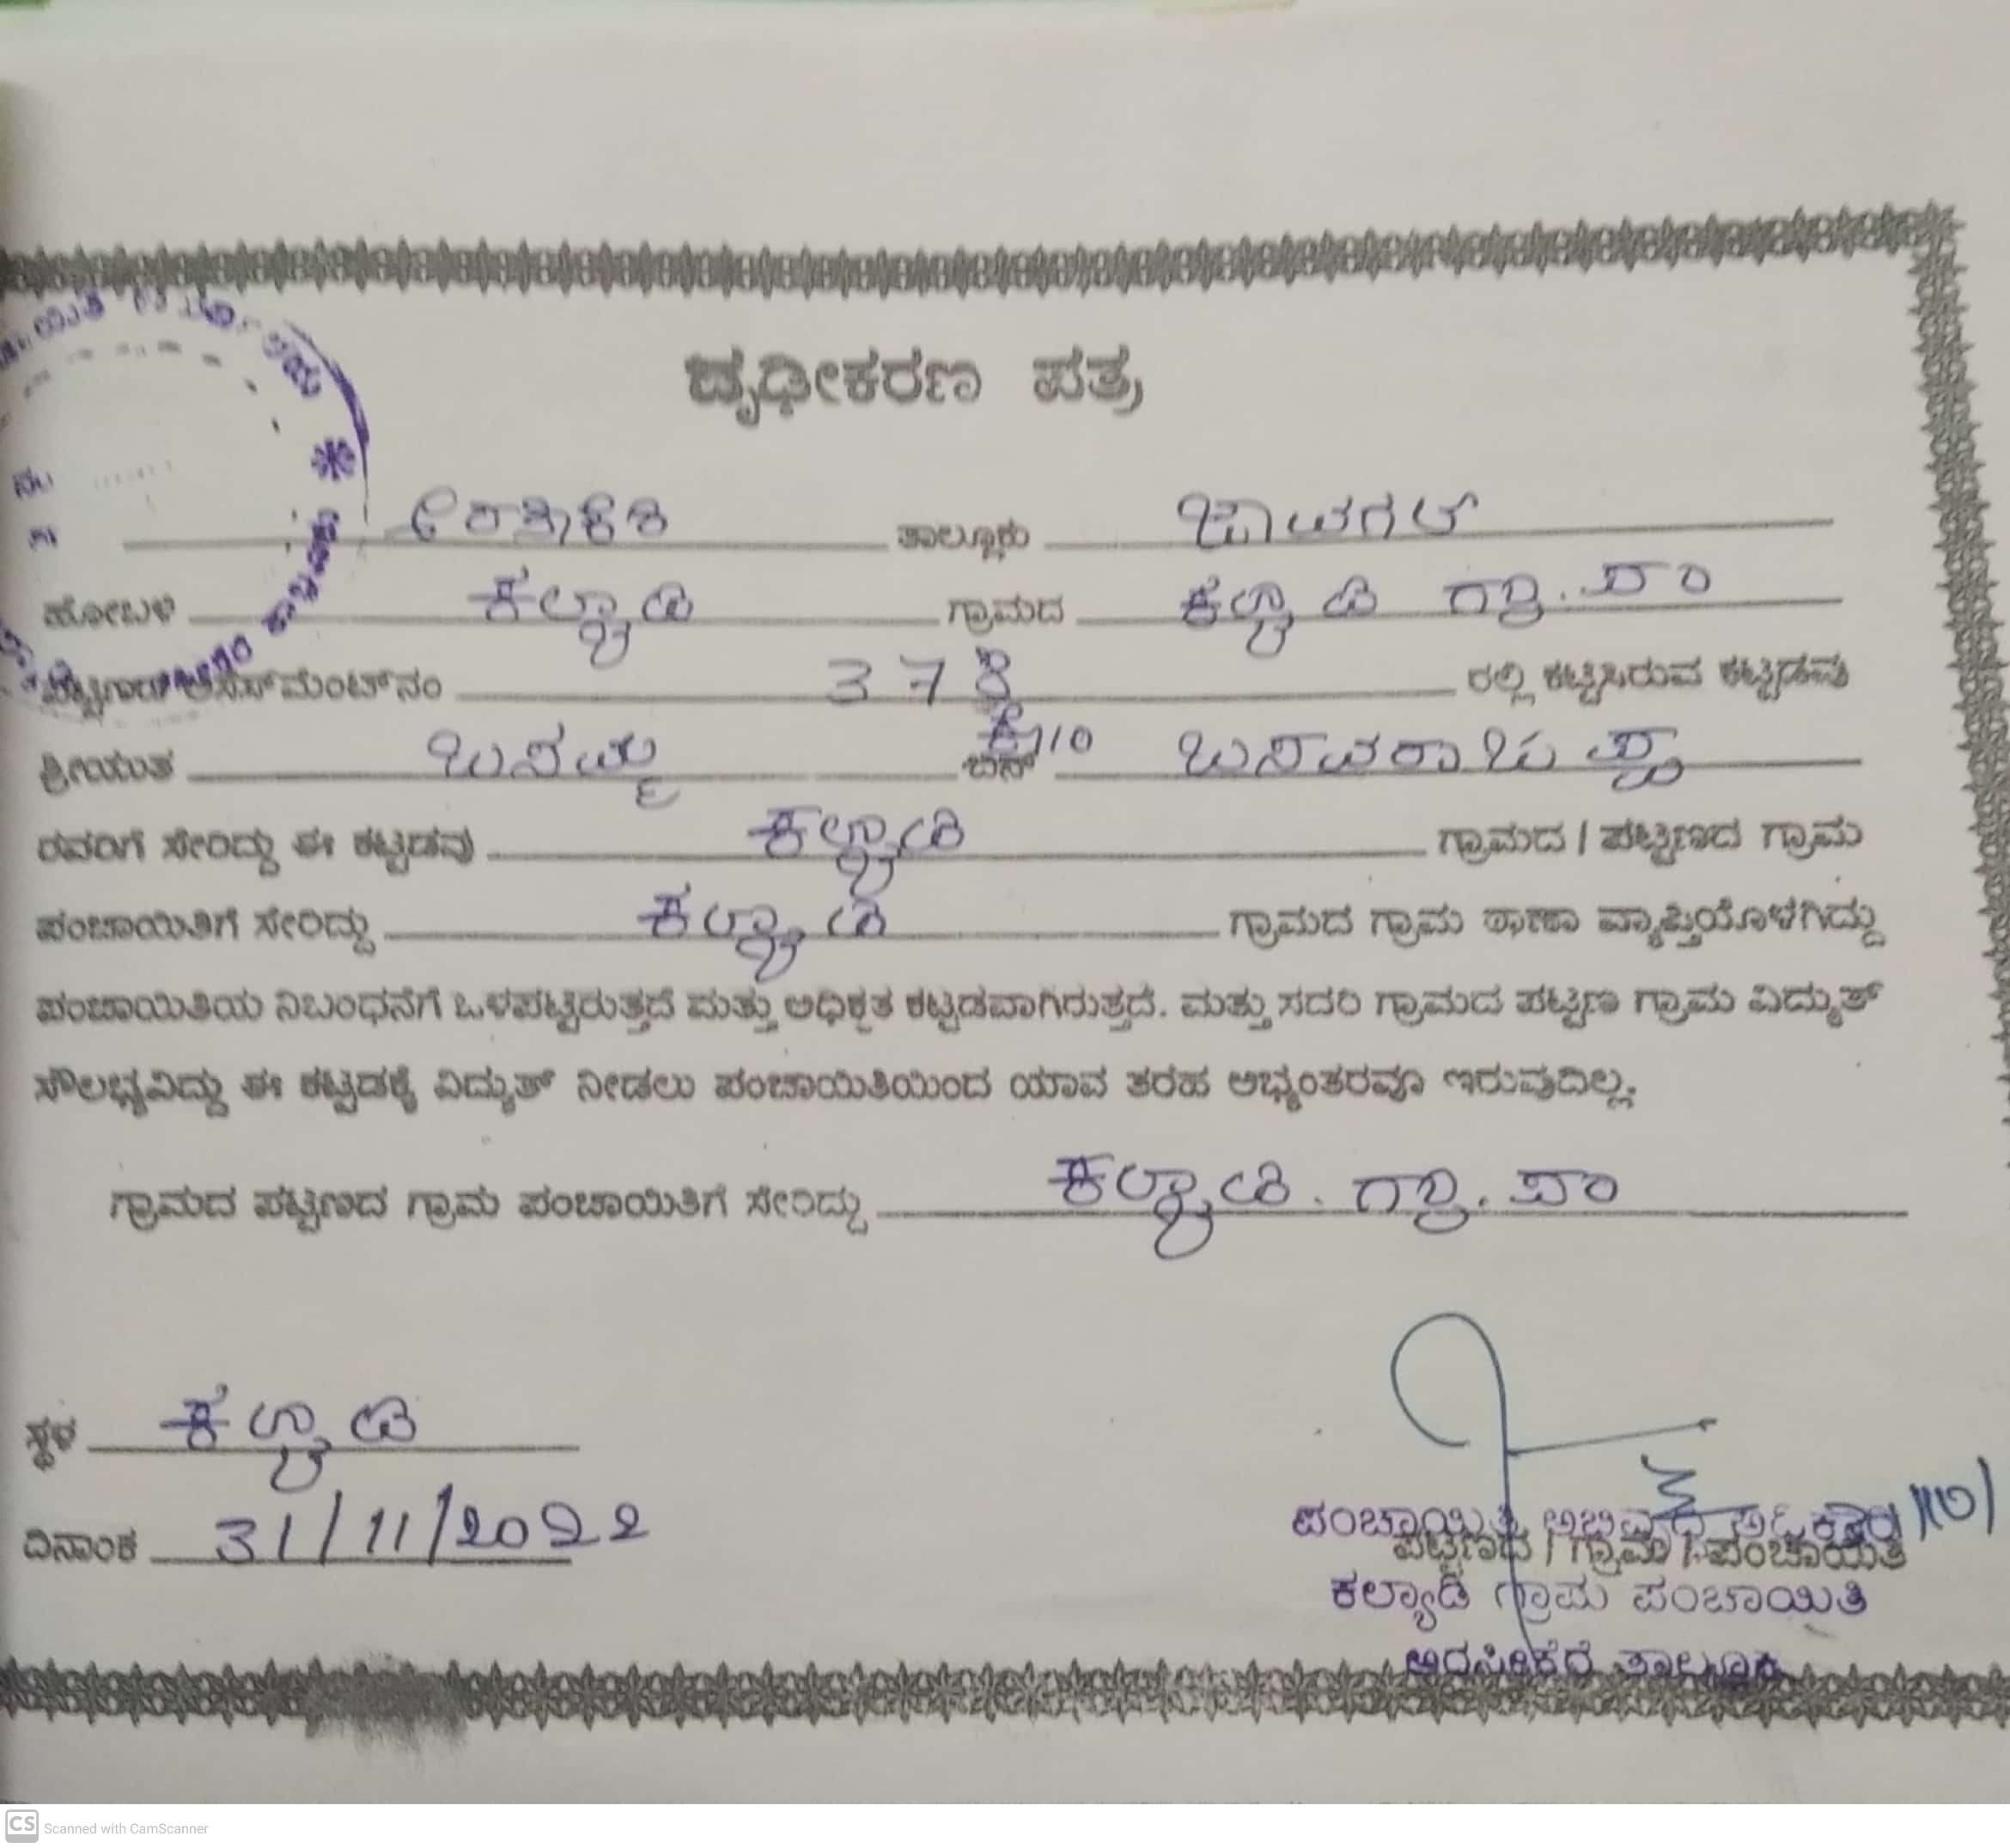 ದೃಢೀಕರಣ ಪತ್ರ
ತಾಲ್ಲೂಕು ಜಾವಗಲ್
ಹೋಬಳಿ ಕಲ್ಯಾಡಿ ಗ್ರಾಮದ ಕಲ್ಯಾಡಿ ಗ್ರಾ. ಪಂ
ಅಸೆಸ್‌ಮೆಂಟ್ ನಂ 378 ರಲ್ಲಿ ಕಟ್ಟಿಸಿರುವ ಕಟ್ಟಡವು
ಶ್ರೀಯುತ ಬಸಮ್ಮ ಕೋಂ ಬಿನ್ ಬಸವರಾಜಪ್ಪ
ರವರಿಗೆ ಸೇರಿದ್ದು ಈ ಕಟ್ಟಡವು ಕಲ್ಯಾಡಿ ಗ್ರಾಮದ / ಪಟ್ಟಣದ ಗ್ರಾಮ
ಪಂಚಾಯಿತಿಗೆ ಸೇರಿದ್ದು ಕಲ್ಯಾಡಿ ಗ್ರಾಮದ ಗ್ರಾಮ ಠಾಣಾ ವ್ಯಾಪ್ತಿಯೊಳಗಿದ್ದು
ಪಂಚಾಯಿತಿಯ ನಿಬಂಧನೆಗೆ ಒಳಪಟ್ಟಿರುತ್ತದೆ ಮತ್ತು ಅಧಿಕೃತ ಕಟ್ಟಡವಾಗಿರುತ್ತದೆ. ಮತ್ತು ಸದರಿ ಗ್ರಾಮದ ಪಟ್ಟಣ ಗ್ರಾಮ ವಿದ್ಯುತ್
ಸೌಲಭ್ಯವಿದ್ದು ಈ ಕಟ್ಟಡಕ್ಕೆ ವಿದ್ಯುತ್ ನೀಡಲು ಪಂಚಾಯಿತಿಯಿಂದ ಯಾವ ತರಹ ಅಭ್ಯಂತರವೂ ಇರುವುದಿಲ್ಲ.
ಗ್ರಾಮದ ಪಟ್ಟಣದ ಗ್ರಾಮ ಪಂಚಾಯಿತಿಗೆ ಸೇರಿದ್ದು ಕಲ್ಯಾಡಿ. ಗ್ರಾ. ಪಂ
ಸ್ಥಳ ಕಲ್ಯಾಡಿ
ದಿನಾಂಕ 31/11/2022
ಪಂಚಾಯಿತಿ ಅಭಿವೃದ್ಧಿ ಅಧಿಕಾರಿ
ಪಟ್ಟಣದ / ಗ್ರಾಮ / ಪಂಚಾಯಿತಿ
ಕಲ್ಯಾಡಿ ಗ್ರಾಮ ಪಂಚಾಯಿತಿ
ಅರಸೀಕೆರೆ ತಾಲ್ಲೂಕು
CS Scanned with CamScanner